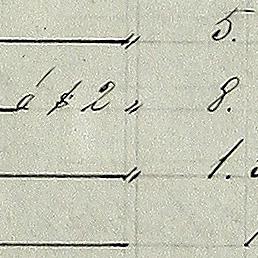 " 5.
á $ 2 " 8.
" 1.